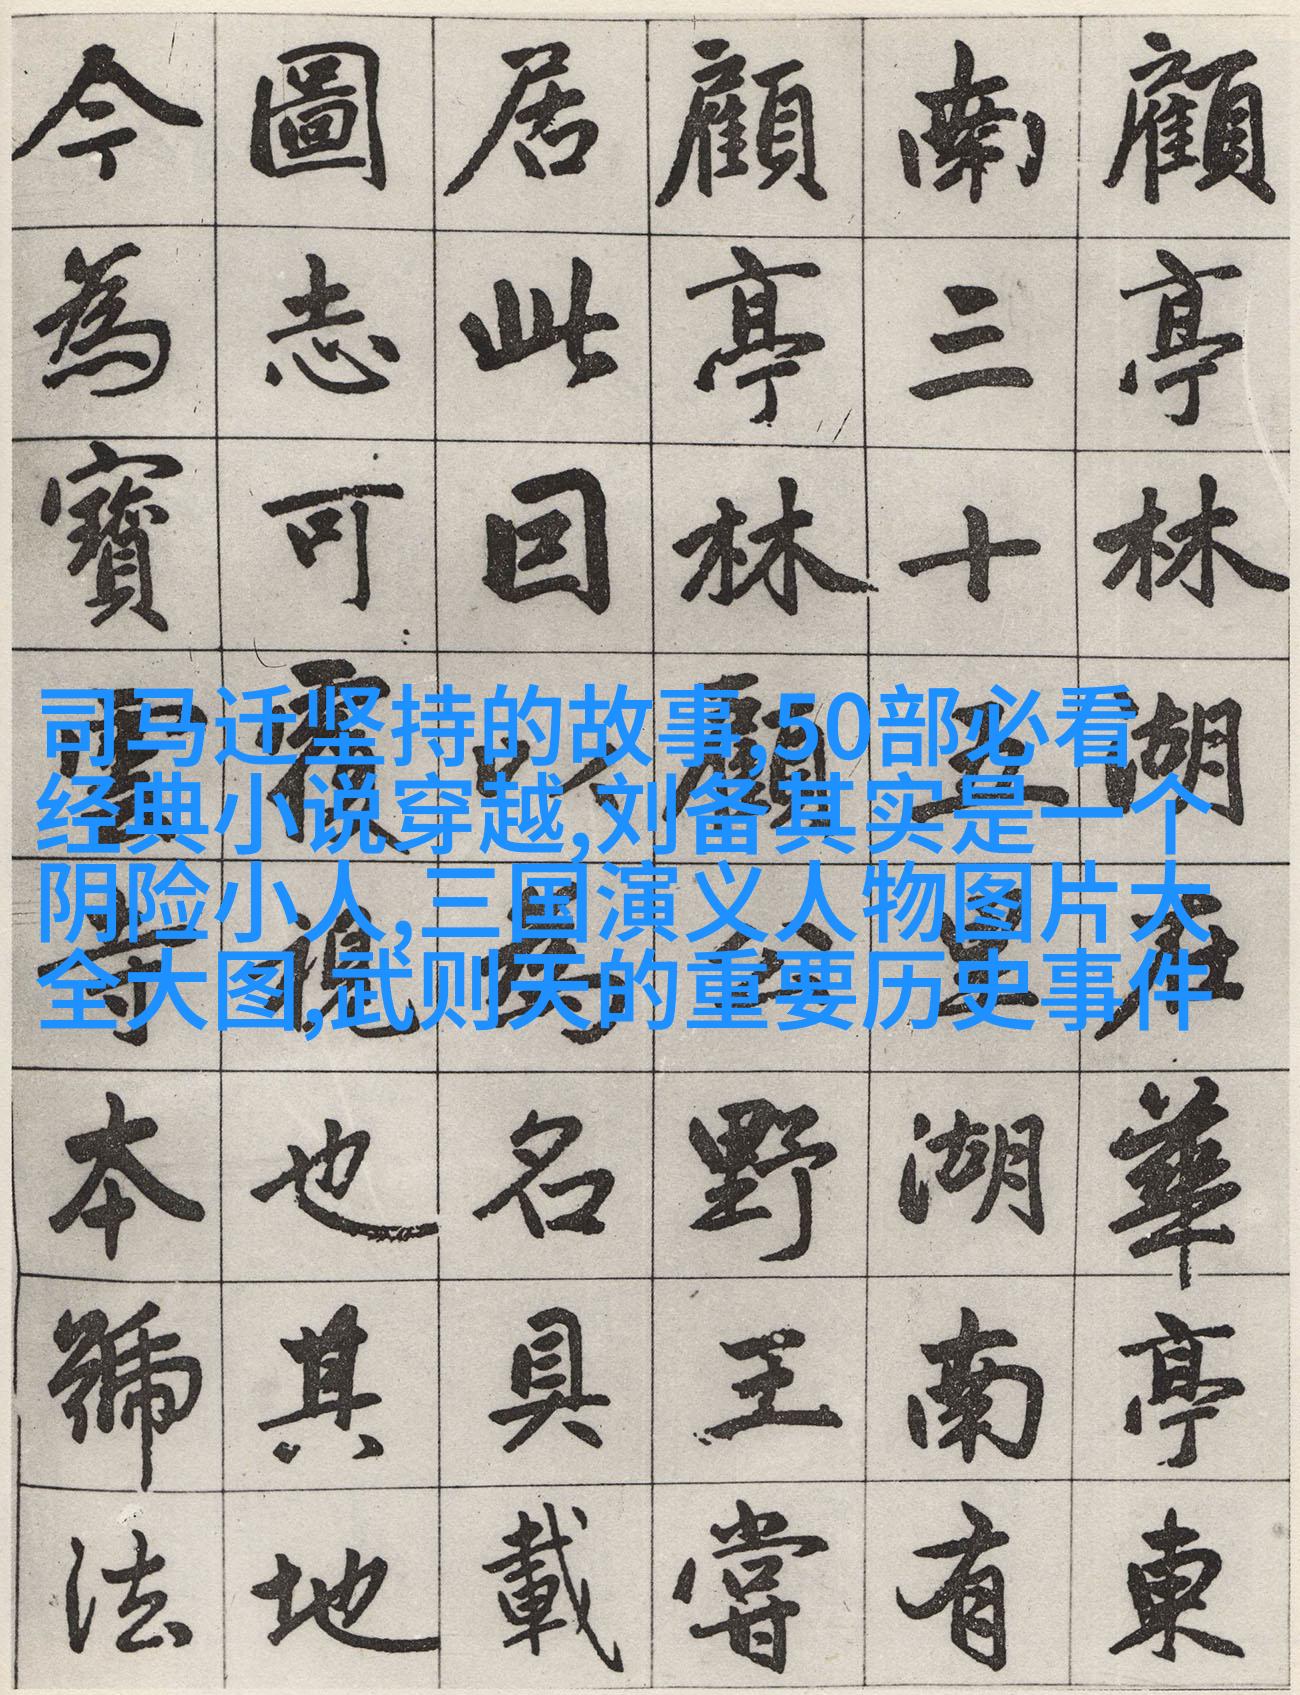 顧亭林湖在華亭東
南三十五里湖南有
顧亭林顧公野王嘗
居此因以為名具載
圖志可覆視也其地
今為寶雲寺本號法
司马迁坚持的故事,50部必看
经典小说穿越,刘备其实是一个
阴险小人,三国演义人物图片大
全大图,武则天的重要历史事件